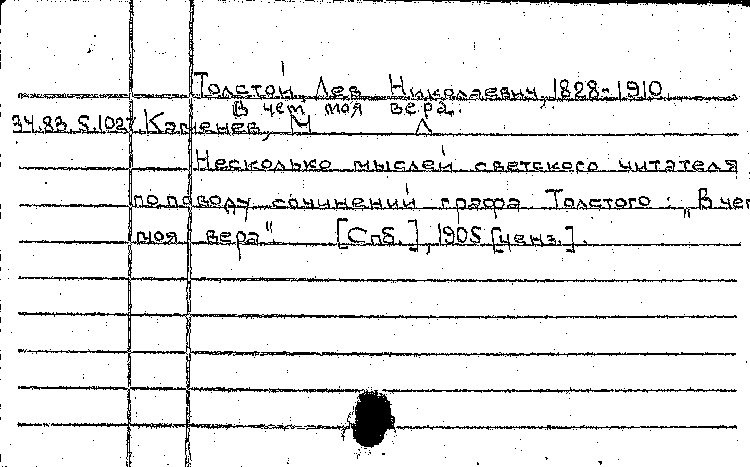 Толстой, Лев Николаевич, 1828-1910.
В чем моя вера.
34.83.5.102. Каменев, М
Несколько мыслей светского читателя
по поводу сочинений графа Толстого: „В чем
моя вера“. [Спб.], 1905 [ценз.].